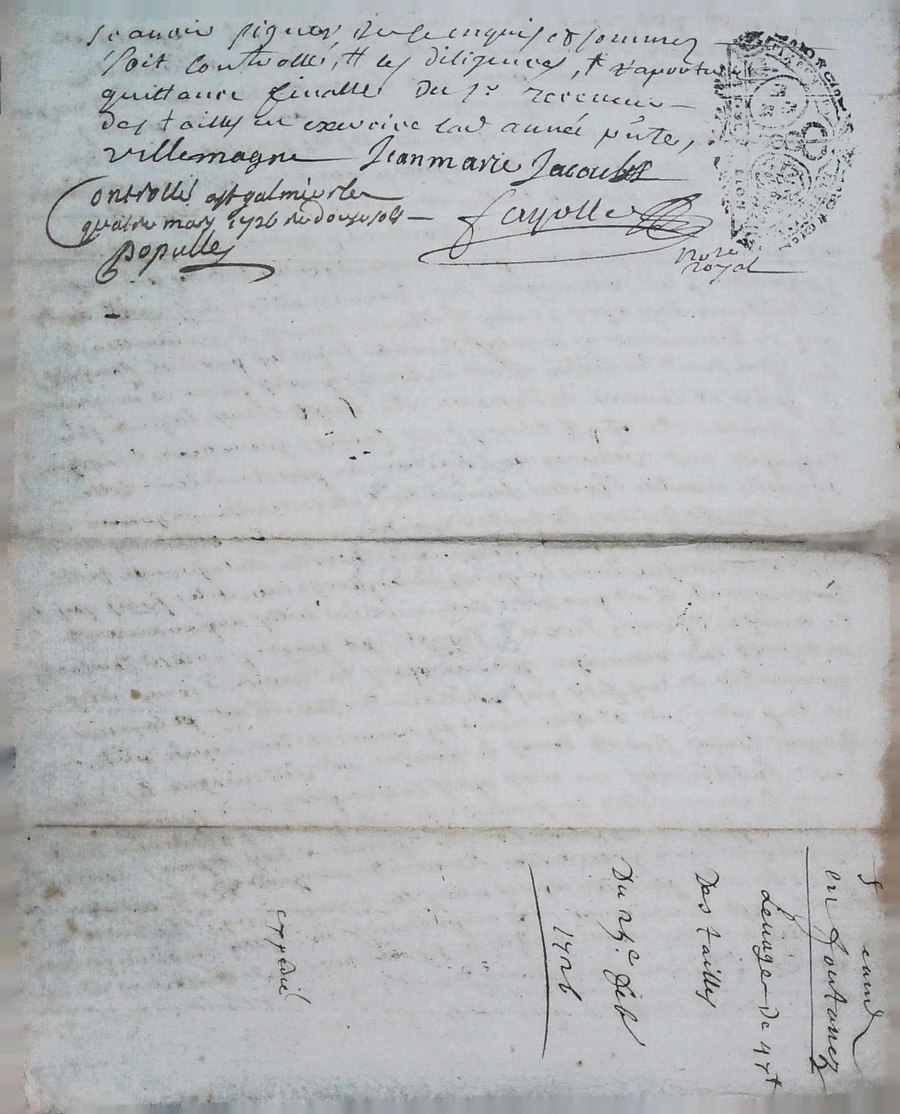 scavoir signer de ce enquis et sommez
soit controllé, # les diligences, # rapporter
quittance finalle du sr receveur
des tailles en exercice lad année pnte,
villemagne Jeanmarie Jacoules
Controllé a st galmier le
quatre mars 1726 re douze sols
populle
fayolle
nore
royal
en fontanez
Levage de 47#
Des tailles
Du 25e feb
1726
expedié